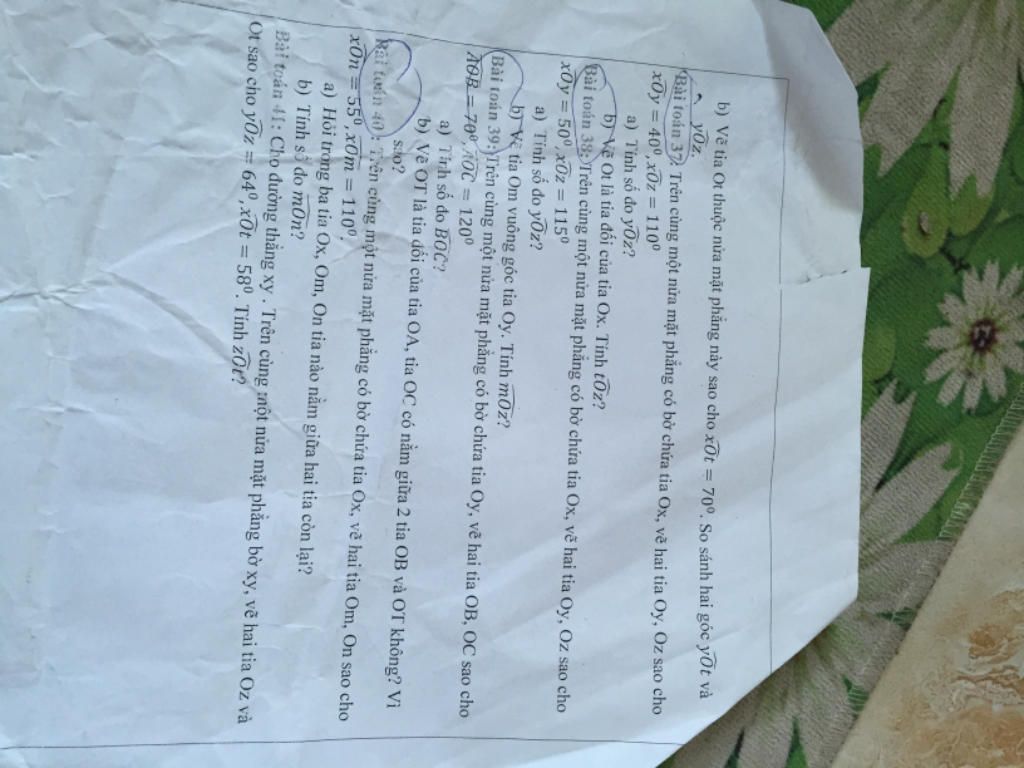 b) Vẽ tia Ot thuộc nửa mặt phẳng này sao cho xOt = 70⁰. So sánh hai góc yOt và
yOz.
Bài toán 37. Trên cùng một nửa mặt phẳng có bờ chứa tia Ox, vẽ hai tia Oy, Oz sao cho
xOy = 40⁰, xOz = 110⁰
a) Tính số đo yOz?
b) Vẽ Ot là tia đối của tia Ox. Tính tOz?
Bài toán 38: Trên cùng một nửa mặt phẳng có bờ chứa tia Ox, vẽ hai tia Oy, Oz sao cho
xOy = 50⁰, xOz = 115⁰
a) Tính số đo yOz?
b) Vẽ tia Om vuông góc tia Oy. Tính mOz?
Bài toán 39: Trên cùng một nửa mặt phẳng có bờ chứa tia Oy, vẽ hai tia OB, OC sao cho
AOB = 70⁰, AOC = 120⁰
a) Tính số đo BOC?
b) Vẽ OT là tia đối của tia OA, tia OC có nằm giữa 2 tia OB và OT không? Vì
sao?
Bài toán 40: Trên cùng một nửa mặt phẳng có bờ chứa tia Ox, vẽ hai tia Om, On sao cho
xOn = 55⁰, xOm = 110⁰.
a) Hỏi trong ba tia Ox, Om, On tia nào nằm giữa hai tia còn lại?
b) Tính số đo mOn?
Bài toán 41: Cho đường thẳng xy . Trên cùng một nửa mặt phẳng bờ xy, vẽ hai tia Oz và
Ot sao cho yOz = 64⁰, xOt = 58⁰. Tính zOt?